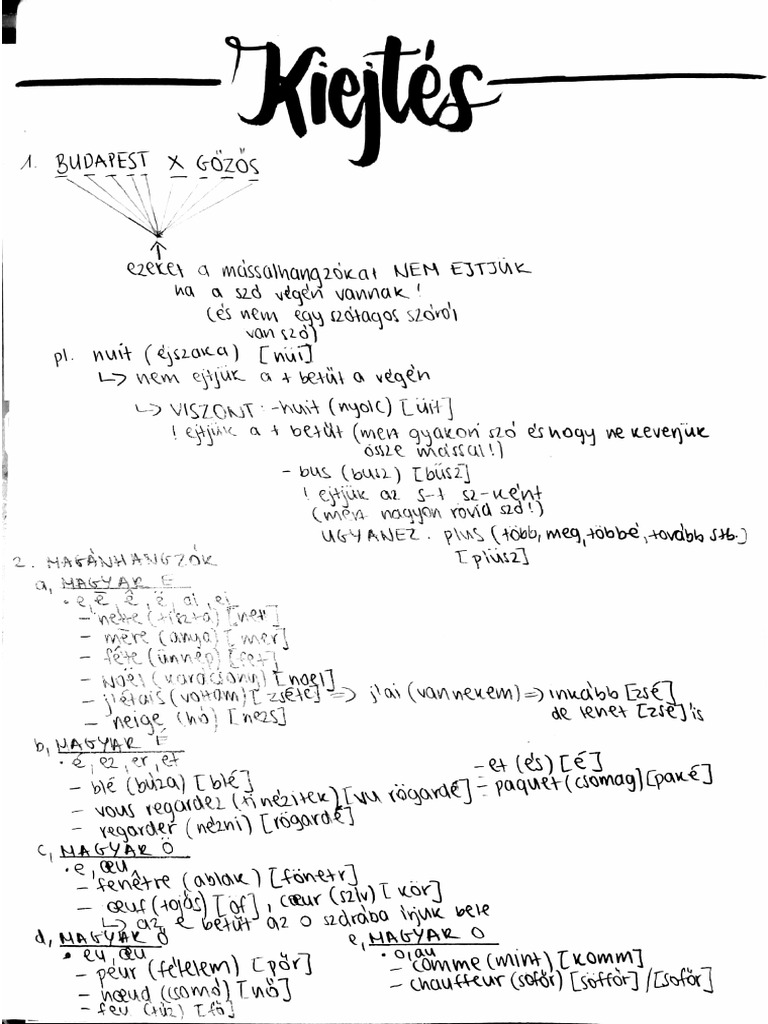 Kiejtés
1. BUDAPEST X GŐZÖS
ezeket a mássalhangzókat NEM EJTJÜK
ha a szó végén vannak!
(és nem egy szótagos szóról
van szó)
pl. nuit (éjszaka) [nüi]
↳ nem ejtjük a t betűt a végén
↳ VISZONT: -huit (nyolc) [üit]
! ejtjük a t betűt (mert gyakori szó és hogy ne keverjük
össze mással!)
- bus (busz) [büsz]
! ejtjük az s-t sz-ként
(mert nagyon rövid szó!)
UGYANEZ: plus (több, meg, többé, tovább stb.)
[plüsz]
2. MAGÁNHANGZÓK
a, MAGYAR E
• e, è, ê, ë, ai, ei
- nette (tiszta) [net]
- mère (anya) [mer]
- fête (ünnep) [fet]
- Noël (karácsony) [noel]
- j'étais (voltam) [zséte] => j'ai (van nekem) => inkább [zsé]
de lehet [zse] is
- neige (hó) [nezs]
b, MAGYAR É
• é, ez, er, et
- blé (búza) [blé]
- vous regardez (ti nézitek) [vu rögardé]
- regarder (nézni) [rögardé]
- et (és) [é]
- paquet (csomag) [paké]
c, MAGYAR Ö
• e, œu
- fenêtre (ablak) [fönetr]
- œuf (tojás) [öf], cœur (szív) [kör]
↳ az e betűt az o szárába írjuk bele
d, MAGYAR Ő
• eu, œu
- peur (félelem) [pőr]
- nœud (csomó) [nő]
- feu (tűz) [fő]
e, MAGYAR O
• o, au
- comme (mint) [komm]
- chauffeur (sofőr) [soffőr] / [sofőr]